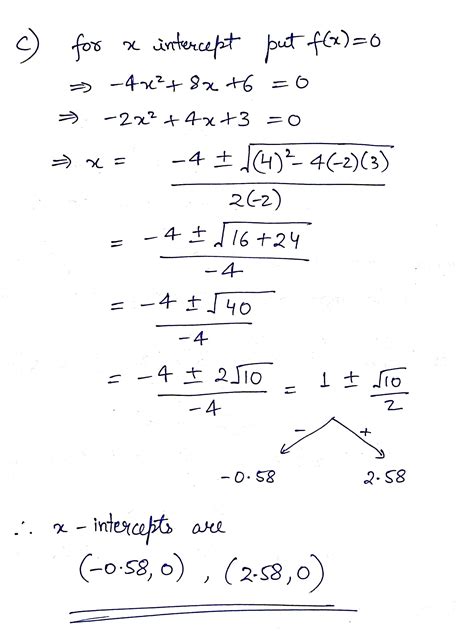 c) for x intercept put f(x)=0
⇒ -4x² + 8x + 6 = 0
⇒ -2x² + 4x + 3 = 0
⇒ x = (-4 ± √((4)² - 4(-2)(3))) / 2(-2)
= (-4 ± √(16+24)) / -4
= (-4 ± √40) / -4
= (-4 ± 2√10) / -4 = 1 ± √10 / 2
- +
-0.58 2.58
∴ x-intercepts are
(-0.58, 0) , (2.58, 0)